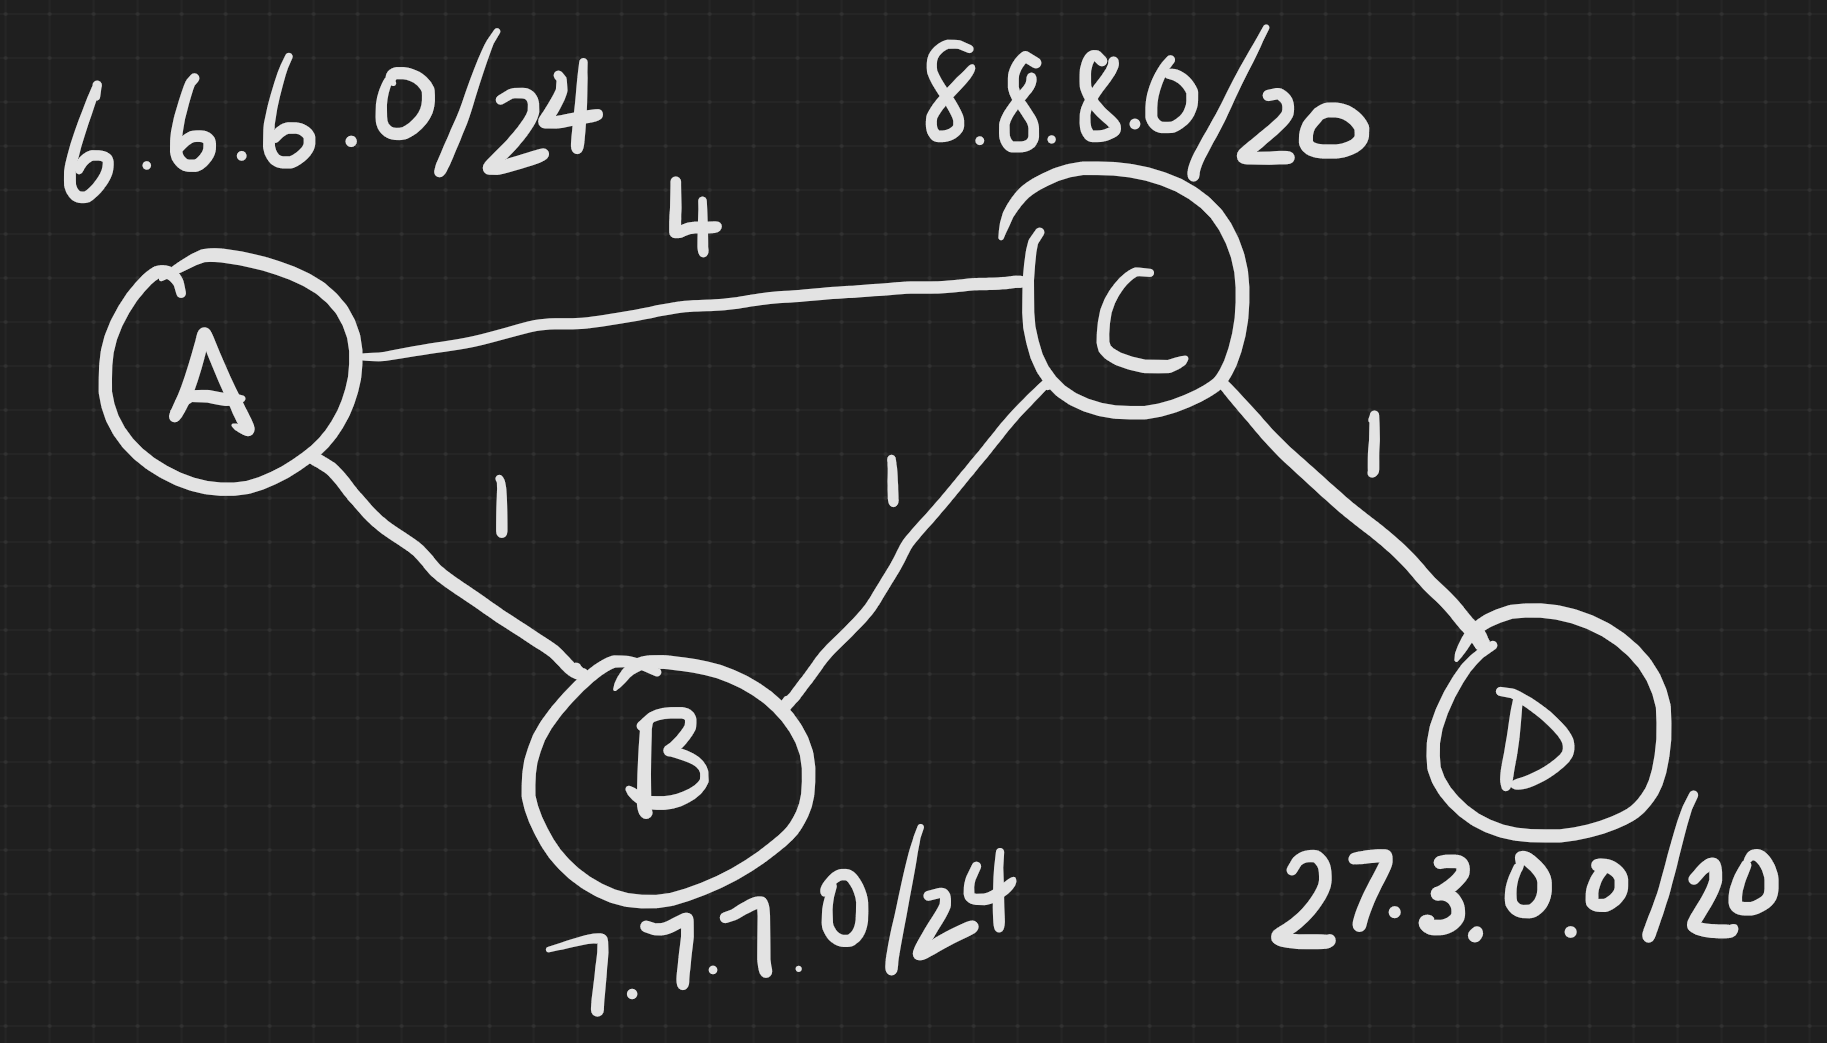 6.6.6.0/24
8.8.8.0/20
4
A
C
1
1
1
B
D
7.7.7.0/24
27.3.0.0/20